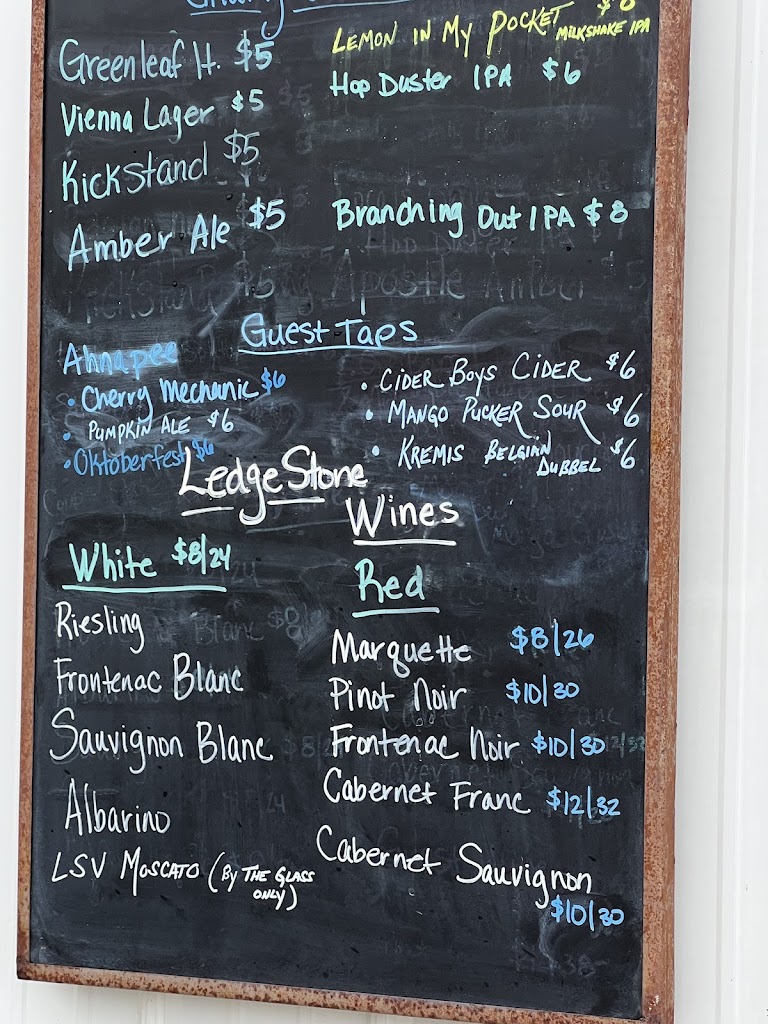 Greenleaf H. $5
Vienna Lager $5
Kickstand $5
Amber Ale $5
LEMON IN MY POCKET
MILKSHAKE IPA
Hop Duster IPA $6
Branching Out IPA $8
Guest Taps
Ahnapee
• Cherry Mechanic $6
• PUMPKIN ALE $6
• Oktoberfest $6
• CIDER BOYS CIDER $6
• MANGO PUCKER SOUR $6
• KREMIS BELGIAN DUBBEL $6
LedgeStone
Wines
White $8/24
Riesling
Frontenac Blanc
Sauvignon Blanc
Albarino
LSV MOSCATO (By THE GLASS
ONLY)
Red
Marquette $8/26
Pinot Noir $10/30
Frontenac Noir $10/30
Cabernet Franc $12/32
Cabernet Sauvignon
$10/30